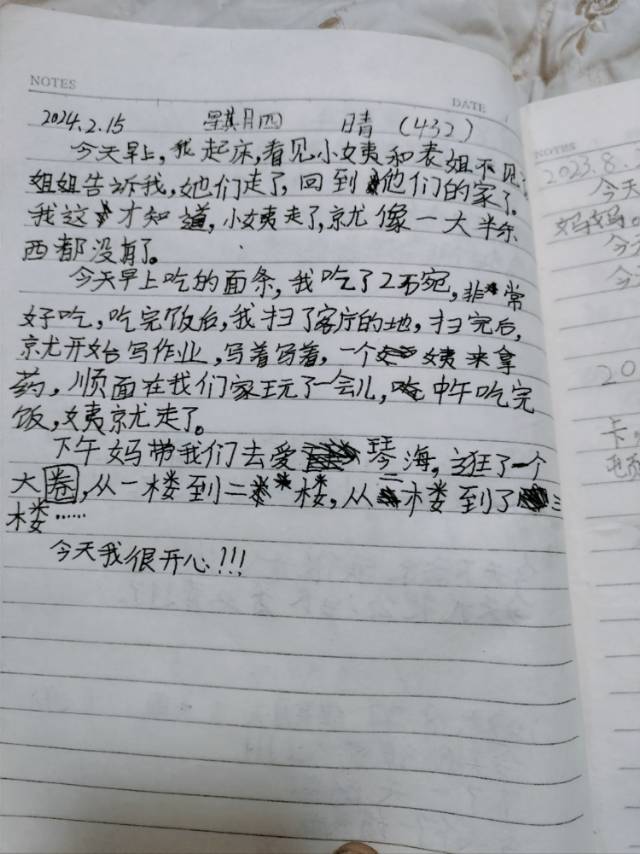 NOTES
DATE
2024.2.15 星期四 晴 (432)
今天早上,我起床,看见小姨和表姐不见了
姐姐告诉我,她们走了,回到他们的家了。
我这才知道,小姨走了,就像一大半东
西都没有了。
今天早上吃的面条,我吃了2碗,非常
好吃,吃完饭后,我扫了客厅的地,扫完后,
就开始写作业,写着写着,一个姨来拿
药,顺面在我们家玩了一会儿,中午吃完
饭,姨就走了。
下午妈带我们去爱琴海,逛了一个
大圈,从一楼到二楼,从二楼到了三
楼……
今天我很开心!!!
NOTES
2023.8.
今天
妈妈。
今
今
20
卡,